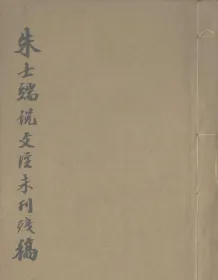 朱士端说文注未刊残稿